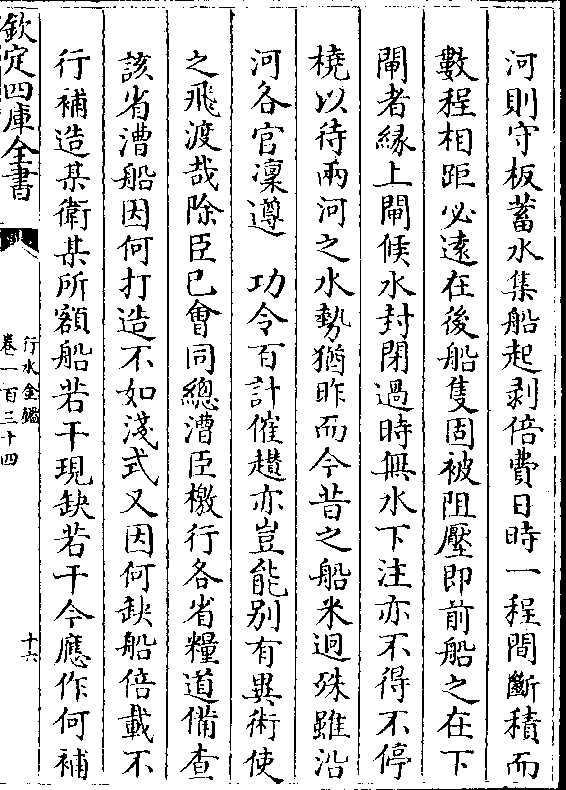 河則守板蓄水集船起剥倍費日時一程間斷積而
數程相距必遠在後船隻固被阻壓即前船之在下
閘者緣上閘候水封閉過時無水下注亦不得不停
橈以待兩河之水勢猶昨而今昔之船米迥殊雖沿
河各官凜遵　功令百計催趲亦豈能別有異術使
之飛渡哉除臣已會同總漕臣檄行各省糧道備查
該省漕船因何打造不如淺式又因何缺船倍載不
行補造某衛某所額船若干現缺若干今應作何補
欽定四庫全書
行水金鑑
卷一百三十四
十六